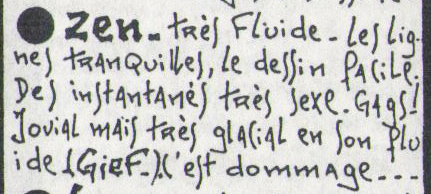 ● Zen - très Fluide - Les lig-
nes tranquilles, le dessin facile.
Des instantanés très sexe. Gags!
Jovial mais très glacial en son flu
ide (GIEF.). C'est dommage ---